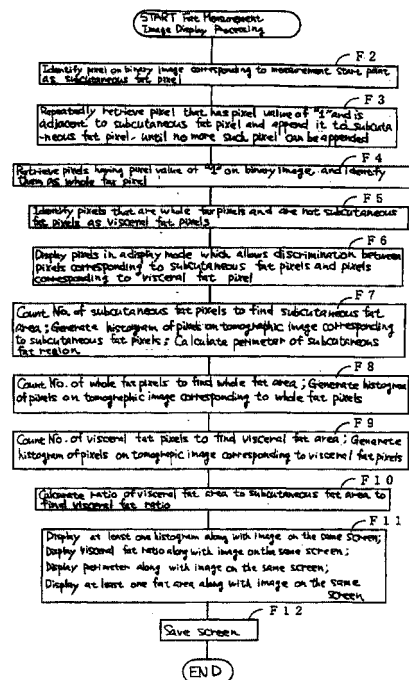 START Fat Measurement
Image Display Processing
F2
Identify pixel on binary image corresponding to measurement start point
as subcutaneous fat pixel
F3
Repeatedly retrieve pixel that has pixel value of "1" and is
adjacent to subcutaneous fat pixel and append it to subcuta-
-neous fat pixel, until no more such pixel can be appended
F4
Retrieve pixels having pixel value of "1" on binary image, and identify
them as whole fat pixel
F5
Identify pixels that are whole fat pixels and are not subcutaneous
fat pixels as visceral fat pixels
F6
Display pixels in a display mode which allows discrimination between
pixels corresponding to subcutaneous fat pixels and pixels
corresponding to visceral fat pixel
F7
Count No. of subcutaneous fat pixels to find subcutaneous fat
area; Generate histogram of pixels on tomographic image corresponding
to subcutaneous fat pixels; Calculate perimeter of subcutaneous
fat region
F8
Count No. of whole fat pixels to find whole fat area; Generate histogram
of pixels on tomographic image corresponding to whole fat pixels
F9
Count No. of visceral fat pixels to find visceral fat area; Generate
histogram of pixels on tomograpic image corresponding to visceral fat pixels
F10
Calculate ratio of visceral fat area to subcutaneous fat area to
find visceral fat ratio
F11
Display at least one histogram along with image on the same screen;
Display visceral fat ratio along with image on the same screen;
Display perimeter along with image on the same screen;
Display at least one fat area along with image on the same
screen
F12
Save screen
END